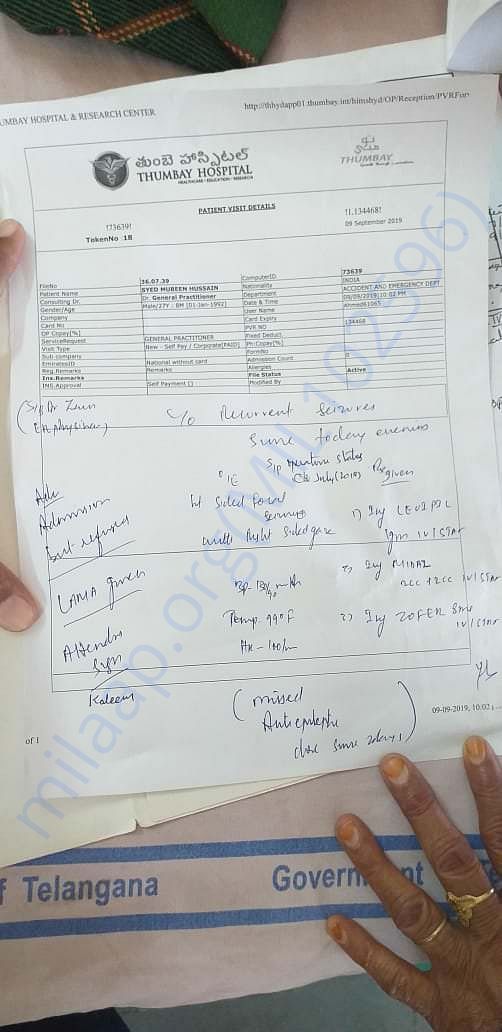 UMBAY HOSPITAL & RESEARCH CENTER
http://thhydapp01.thumbay.int/himshyd/OP/Reception/PVRFor
తుంబె హాస్పిటల్
THUMBAY HOSPITAL
HEALTHCARE - EDUCATION - RESEARCH
THUMBAY
PATIENT VISIT DETAILS
!73639!
!1,134468!
TokenNo 18
09 September 2019
FileNo 36.07.39 ComputerID 73639
Patient Name SYED MUBEEN HUSSAIN Nationality INDIA
Consulting Dr. Dr. General Practitioner Department ACCIDENT AND EMERGENCY DEPT
Gender/Age Male/27Y : 8M (01-Jan-1992) Date & Time 09/09/2019 10:02 PM
Company User Name ahmed61065
Card No Card Expiry
OP Copay[%] PVR NO 134468
ServiceRequest GENERAL PRACTITIONER Fixed Deduct.
Visit Type New - Self Pay / Corporate[PAID] Ph:Copay[%]
Sub company FormNo
EmiratesID National without card Admission Count 0
Reg.Remarks Remarks Allergies
Ins.Remarks File Status Active
INS.Approval Self Payment [] Modified By
(S/B Dr
ER physician)
c/o Recurrent seizures
since today evening
S/E
July (2019)
Rx given
Adv
Admission
but refused
sided focal
seizures
with Right sided gaze
1) Inj LEVIPIL
1gm IV/STAT
LAMA given
BP-
2) Inj MIDAZ
IV/STAT
Attender
Sign
Temp 99°F
3) Inj ZOFER
IV/STAT
HR - 100/m
Kaleem
(missed
Antiepileptic
dose since 2days)
09-09-2019, 10:02
of 1
milaap.org(MIL102596)
f Telangana
Government
Te